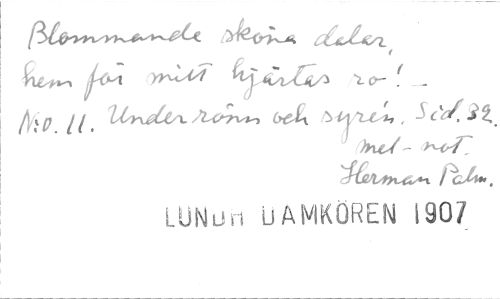 Blommande sköna dalar,
hem för mitt hjärtas ro! –
N:o. 11. Under rönn och syrén. Sid. 32.
mel-not.
Herman Palm.
LUNDH DAMKÖREN 1907